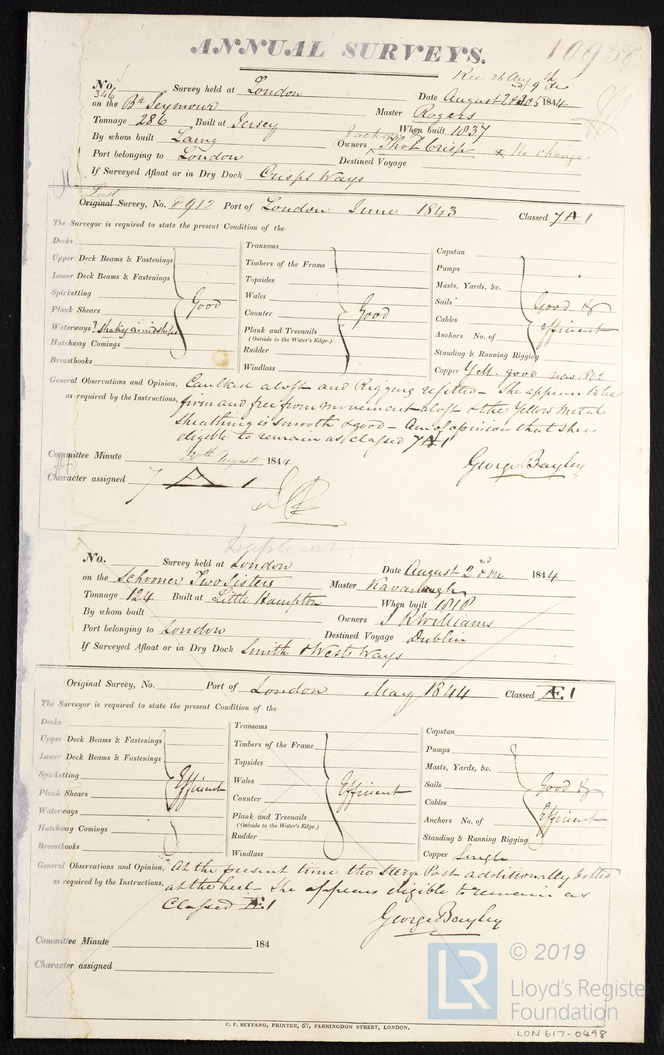 ANNUAL SURVEYS.
10950
Rec 26 Aug
No. 346 Survey held at London Date August 1844
on the Bk Seymour Master Rogers
Tonnage 286 Built at Jersey When built 1837
By whom built Laing Owners Thos Crisp No change
Port belonging to London Destined Voyage
If Surveyed Afloat or in Dry Dock Crisps Ways
Last
Original Survey, No. 8912 Port of London June 1843 Classed 7 A 1
The Surveyor is required to state the present Condition of the
Decks
Upper Deck Beams & Fastenings
Lower Deck Beams & Fastenings
Spirketting
Plank Shears
Waterways
Hatchway Comings
Breasthooks
Good
Transoms
Timbers of the Frame
Topsides
Wales
Counter
Plank and Treenails
(Outside to the Water's Edge.)
Rudder
Windlass
Good
Capstan
Pumps
Masts, Yards, &c.
Sails
Cables
Anchors No. of
Standing & Running Rigging
Copper Y.M. good new 1842
Good & efficient
General Observations and Opinion, Caulked aloft and Rigging refitted – She appears to be
as required by the Instructions, firm and free from movement aloft & the Yellow Metal
sheathing is smooth & good – Am of opinion that she is
eligible to remain as classed 7 A 1
Committee Minute 30th August 1844 George Bayley
Character assigned 7 A 1
Duplicate
No. Survey held at London Date August 2nd 1844
on the Schooner Two Sisters Master Kavanagh
Tonnage 124 Built at Little Hampton When built 1818
By whom built Owners J R Williams
Port belonging to London Destined Voyage Dublin
If Surveyed Afloat or in Dry Dock Smith & Wests Ways
Original Survey, No. Port of London May 1844 Classed Æ 1
The Surveyor is required to state the present Condition of the
Decks
Upper Deck Beams & Fastenings
Lower Deck Beams & Fastenings
Spirketting
Plank Shears
Waterways
Hatchway Comings
Breasthooks
Efficient
Transoms
Timbers of the Frame
Topsides
Wales
Counter
Plank and Treenails
(Outside to the Water's Edge.)
Rudder
Windlass
Efficient
Capstan
Pumps
Masts, Yards, &c.
Sails
Cables
Anchors No. of
Standing & Running Rigging
Copper Single
Good & Efficient
General Observations and Opinion, At the present time the Stern Post additionally bolted
as required by the Instructions, at the heel – She appears eligible to remain as
Classed Æ 1
George Bayley
Committee Minute 184
Character assigned
C. F. SEYFANG, PRINTER, 57, FARRINGDON STREET, LONDON.
LR © 2019
Lloyd's Register
Foundation
LON 617-0498